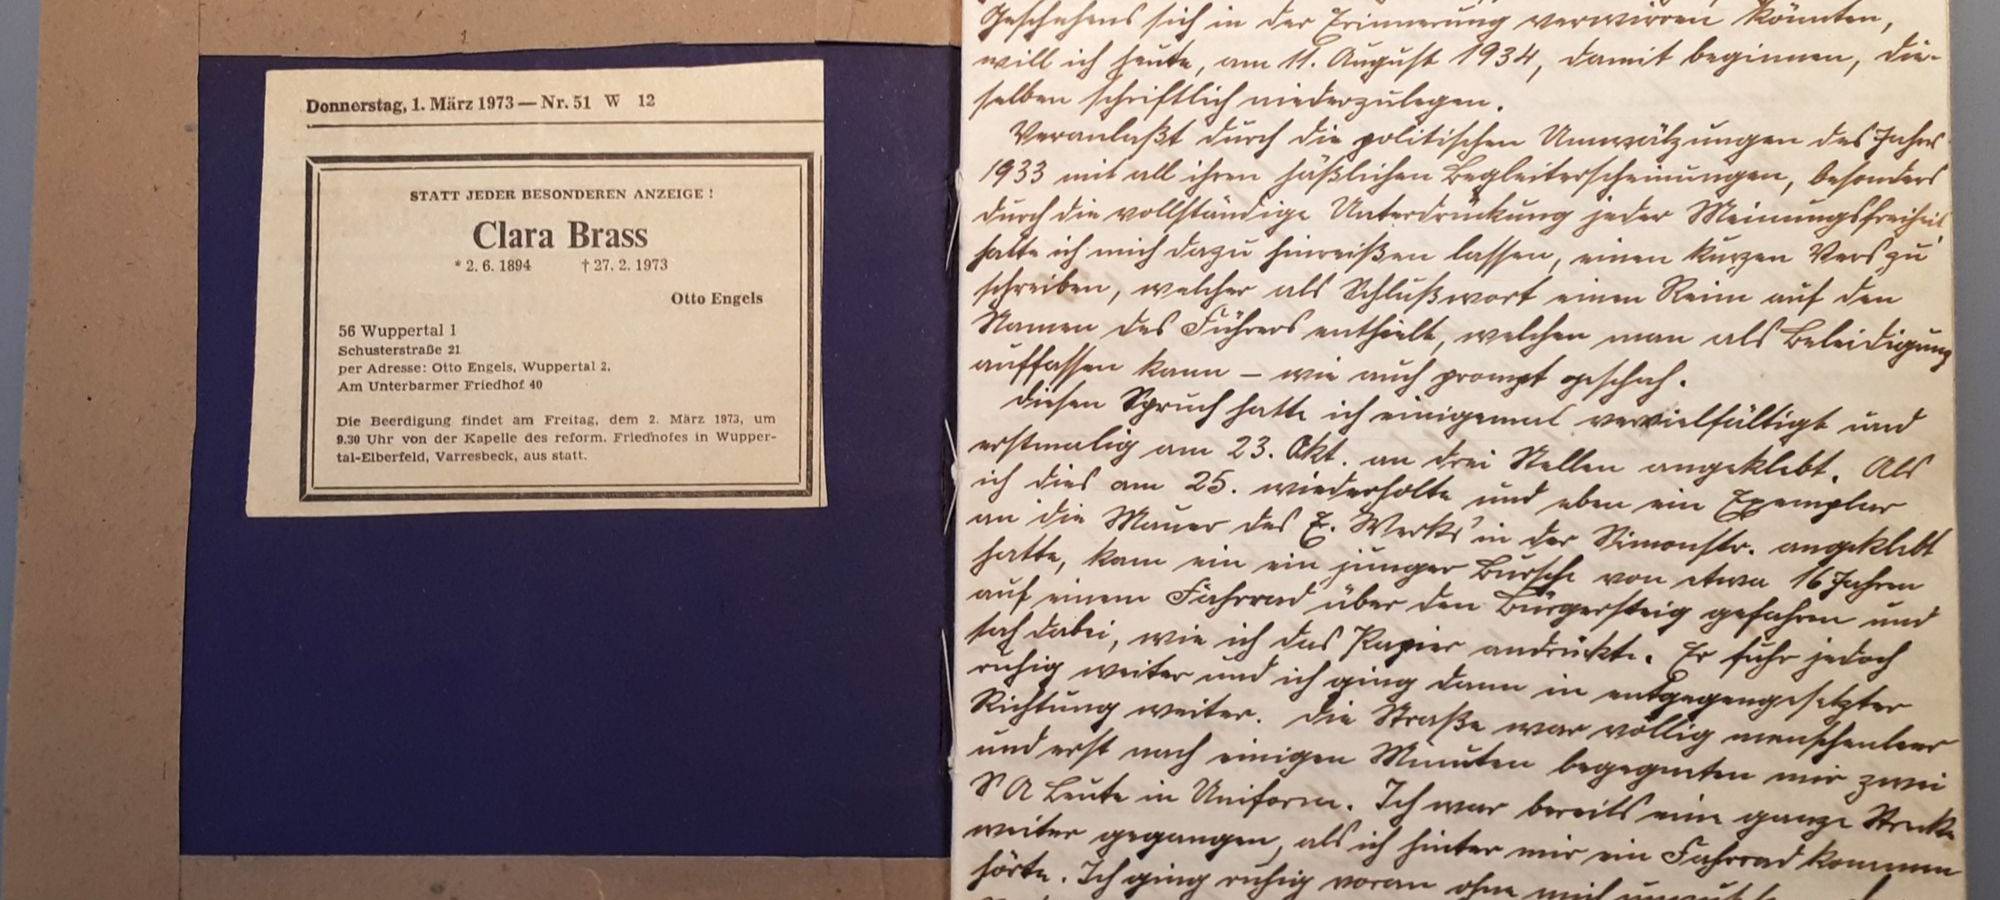 Donnerstag, 1. März 1973 — Nr. 51 W 12
STATT JEDER BESONDEREN ANZEIGE !
Clara Brass
* 2. 6. 1894 † 27. 2. 1973
Otto Engels
56 Wuppertal 1
Schusterstraße 21
per Adresse: Otto Engels, Wuppertal 2,
Am Unterbarmer Friedhof 40
Die Beerdigung findet am Freitag, dem 2. März 1973, um
9.30 Uhr von der Kapelle des reform. Friedhofes in Wupper-
tal-Elberfeld, Varresbeck, aus statt.
Geschehens sich in der Erinnerung verwirren könnten,
will ich heute, am 11. August 1934, damit beginnen, die-
selben schriftlich niederzulegen.
Veranlaßt durch die politischen Umwälzungen des Jahres
1933 mit all ihren häßlichen Begleiterscheinungen, besonders
durch die vollständige Unterdrückung jeder Meinungsfreiheit
hatte ich mich dazu hinreißen lassen, einen kurzen Vers zu
schreiben, welcher als Schlußwort einen Reim auf den
Namen des Führers enthielt, welchen man als Beleidigung
auffassen kann – wie auch prompt geschah.
Diesen Spruch hatte ich einigemal vervielfältigt und
erstmalig am 23. Okt. an drei Stellen angeklebt. Als
ich dies am 25. wiederholte und eben ein Exemplar
an die Mauer des E. Werks in der Simonstr. angeklebt
hatte, kam ein ein junger Bursche von etwa 16 Jahren
auf einem Fahrrad über den Bürgersteig gefahren und
sah dabei, wie ich das Papier andrückte. Er fuhr jedoch
ruhig weiter und ich ging dann in entgegengesetzter
Richtung weiter. Die Straße war völlig menschenleer
und erst nach einigen Minuten begegneten mir zwei
S A Leute in Uniform. Ich war bereits eine ganze Strecke
weiter gegangen, als ich hinter mir ein Fahrrad kommen
hörte. Ich ging ruhig voran ohne mich